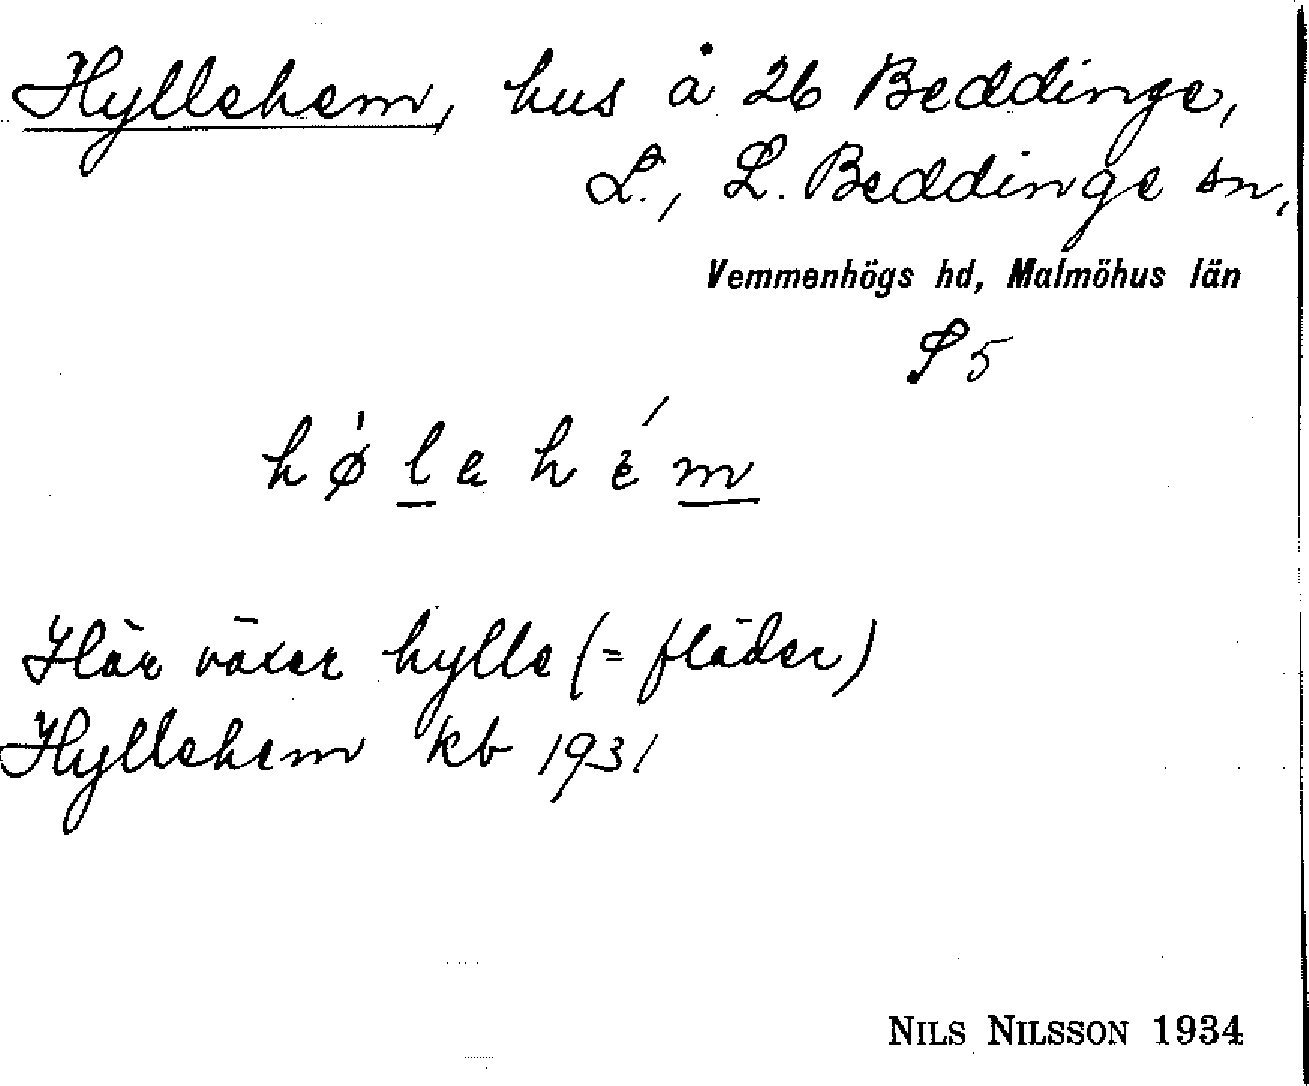 Hyllehem, hus å 26 Beddinge,
L., L. Beddinge sn,
Vemmenhögs hd, Malmöhus län
S 5
Här växer hylle (= fläder)
Hyllehem kb 1931
NILS NILSSON 1934